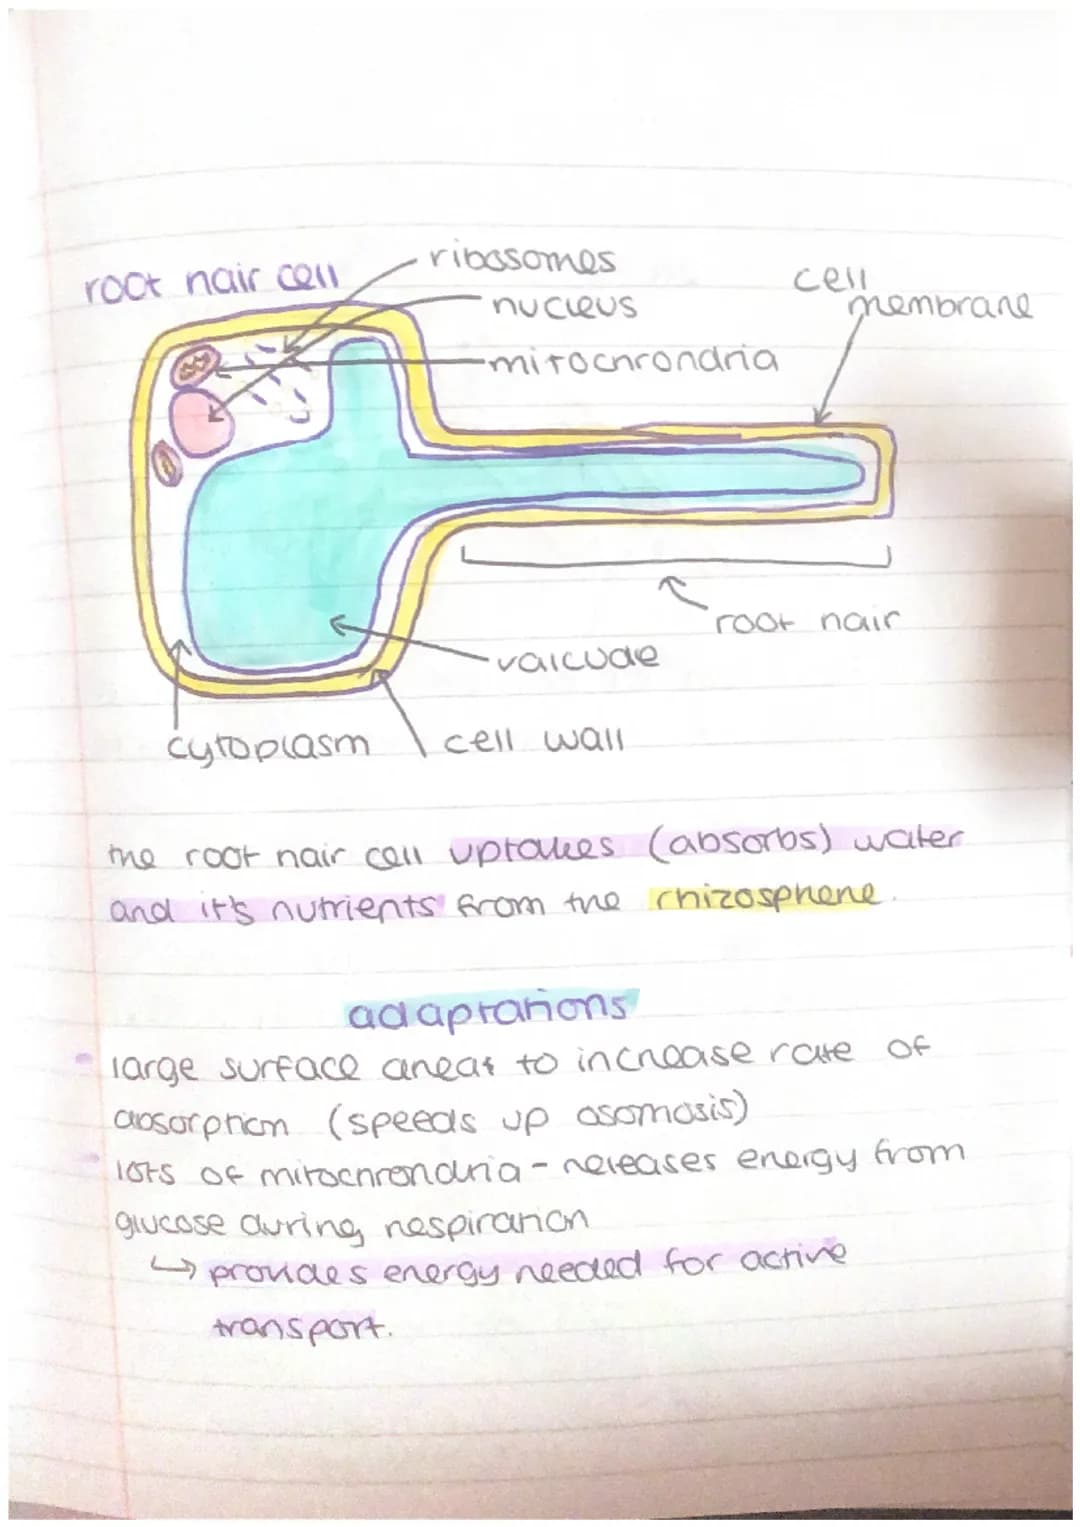 root hair cell
ribosomes
nucleus
mitochrondria
cell
membrane
root hair
valcuole
cytoplasm
cell wall
the root hair cell uptakes (absorbs) water
and it's nutrients from the rhizosphere.
adaptations
large surface areas to increase rate of
absorption (speeds up osomosis)
lots of mitochrondria - releases energy from
glucose during respiration
↳ provides energy needed for active
transport.